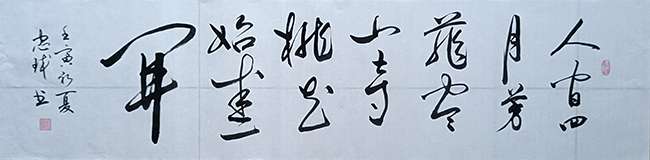 人間四
月芳
菲尽
山寺
桃花
始盛
開
壬寅初夏
忠球书